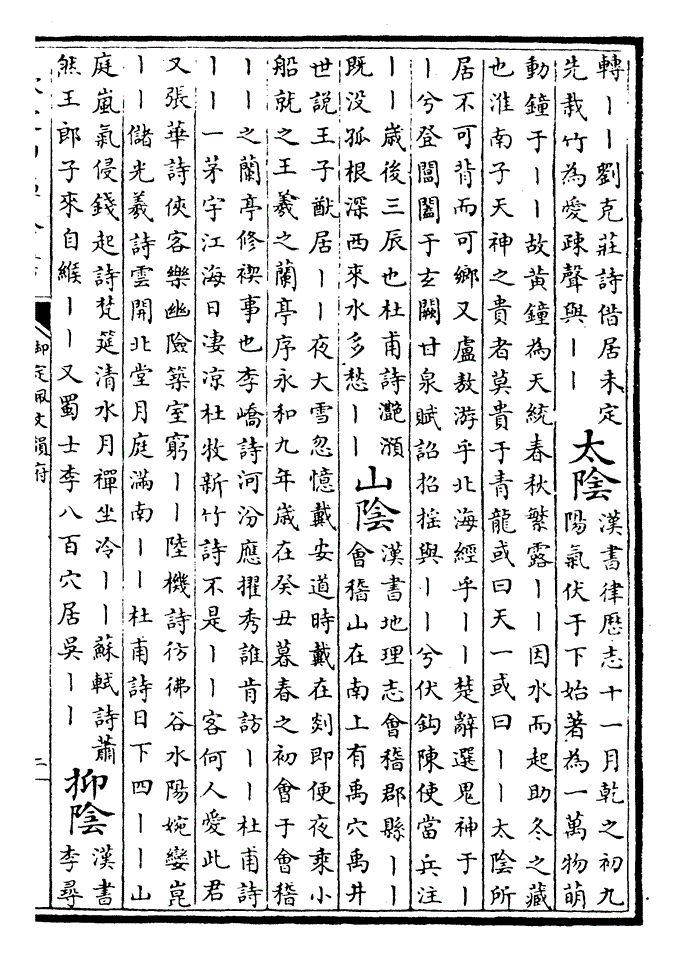 轉丨丨劉克莊詩借居未定
先栽竹為愛疎聲與丨丨
太陰
漢書律歷志十一月乾之初九
陽氣伏于下始著為一萬物萌
動鐘于丨丨故黃鐘為天統春秋繁露丨丨因水而起助冬之藏
也淮南子天神之貴者莫貴于青龍或曰天一或曰丨丨太陰所
居不可背而可鄉又盧敖游乎北海經乎丨丨楚辭選鬼神于丨
丨兮登閶闔于玄闕甘泉賦詔招搖與丨丨兮伏鈎陳使當兵注
丨丨歲後三辰也杜甫詩灔澦
既没孤根深西來水多愁丨丨
山陰
漢書地理志會稽郡縣丨丨
會稽山在南上有禹穴禹井
世説王子猷居丨丨夜大雪忽憶戴安道時戴在剡即便夜乘小
船就之王羲之蘭亭序永和九年歲在癸丑暮春之初會于會稽
丨丨之蘭亭修禊事也李嶠詩河汾應擢秀誰肯訪丨丨杜甫詩
丨丨一茅宇江海日凄涼杜牧新竹詩不是丨丨客何人愛此君
又張華詩俠客樂幽險築室窮丨丨陸機詩彷彿谷水陽婉孌崑
丨丨儲光羲詩雲開北堂月庭滿南丨丨杜甫詩日下四丨丨山
庭嵐氣侵錢起詩梵筵清水月禪坐冷丨丨蘇軾詩蕭
然王郎子來自緱丨丨又蜀士李八百穴居吳丨丨
抑陰
漢書
李尋
御定佩文韻府
二